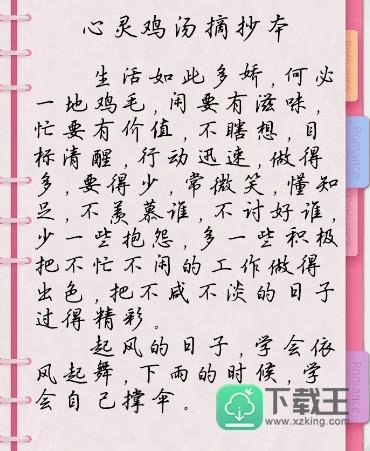 心灵鸡汤摘抄本
生活如此多娇,何必
一地鸡毛,闲要有滋味,
忙要有价值,不瞎想,目
标清醒,行动迅速,做得
多,要得少,常微笑,懂知
足,不羡慕谁,不讨好谁,
少一些抱怨,多一些积极
把不忙不闲的工作做得
出色,把不咸不淡的日子
过得精彩。
起风的日子,学会依
风起舞,下雨的时候,学
会自己撑伞。
Romance
Romance
Romance
Romance
下载王
www.xzking.com